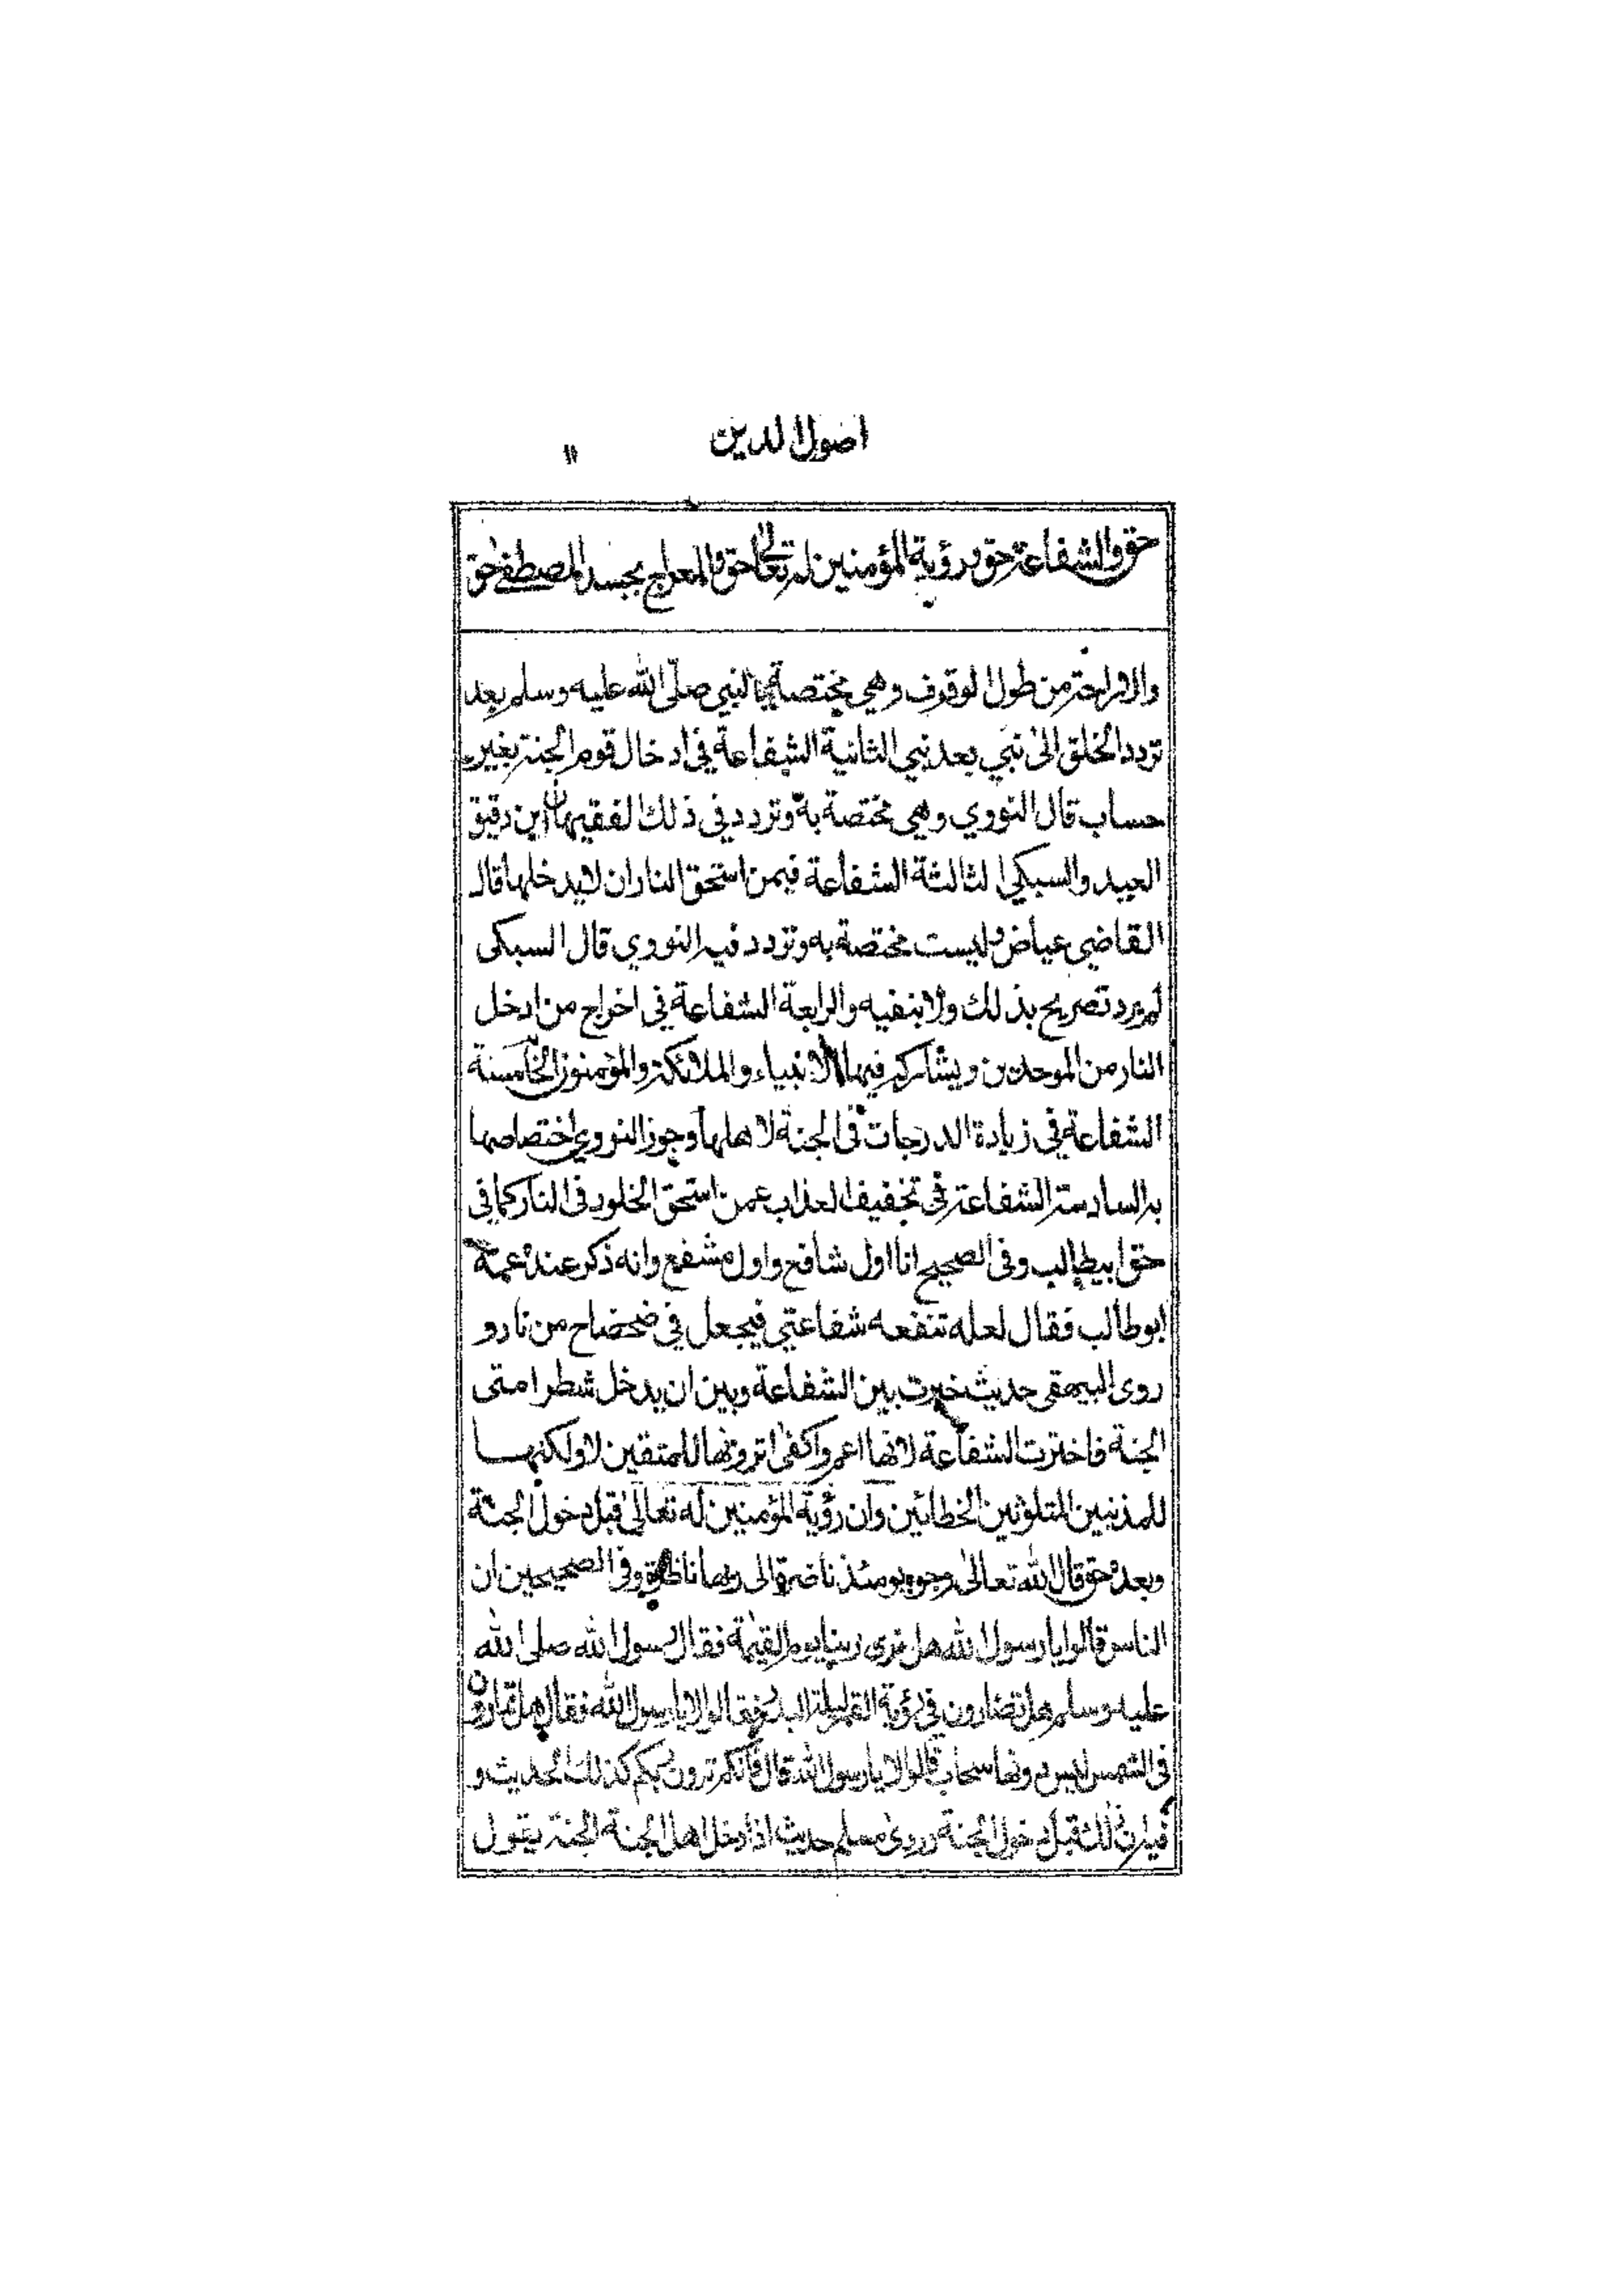 اصول الدين
١١
حق والشفاعة حق ورؤية المؤمنين له تعالى حق والمعراج بجسد المصطفى حق
والاراحة من طول الوقوف وهي مختصة بالنبي صلى الله عليه وسلم بعد
تردد الخلق الى نبي بعد نبي الثانية الشفاعة في ادخال قوم الجنة بغير
حساب قال النووي وهي مختصة به وتردد في ذلك الفقيهان ابن دقيق
العيد والسبكي الثالثة الشفاعة فيمن استحق النار ان لا يدخلها قال
القاضي عياض وليست مختصة به وتردد فيه النووي قال السبكى
لم يرد تصريح بذلك ولا بنفيه والرابعة الشفاعة في اخراج من ادخل
النار من الموحدين ويشاركه فيها الانبياء والملائكة والمؤمنون الخامسة
الشفاعة في زيادة الدرجات فى الجنة لاهلها وجوز النووي اختصاصها
به السادسة الشفاعة في تخفيف العذاب عمن استحق الخلود فى النار كما في
حق ابيطالب وفى الصحيح انا اول شافع واول مشفع وانه ذكر عنده عمه
ابو طالب فقال لعله تنفعه شفاعتي فيجعل في ضحضاح من نار و
روى البيهقى حديث خيرت بين الشفاعة وبين ان يدخل شطر امتى
الجنة فاخترت الشفاعة لانها اعم واكفى اترونها للمتقين لا ولكنها
للمذنبين المتلوثين الخطائين وان رؤية المؤمنين له تعالى قبل دخول الجنة
وبعده حق قال الله تعالى وجوه يومئذ ناضرة الى ربها ناظرة وفى الصحيحين ان
الناس قالوا يا رسول الله هل نرى ربنا يوم القيمة فقال رسول الله صلى الله
عليه وسلم هل تضارون في رؤية القمر ليلة البدر فقالوا لا يا رسول الله فقال هل تمارون
فى الشمس ليس دونها سحاب قالوا لا يا رسول الله قال فانكم ترون ربكم كذلك الحديث و
فيه ان ذلك قبل دخول الجنة وروى مسلم حديث اذا دخل اهل الجنة الجنة يقول